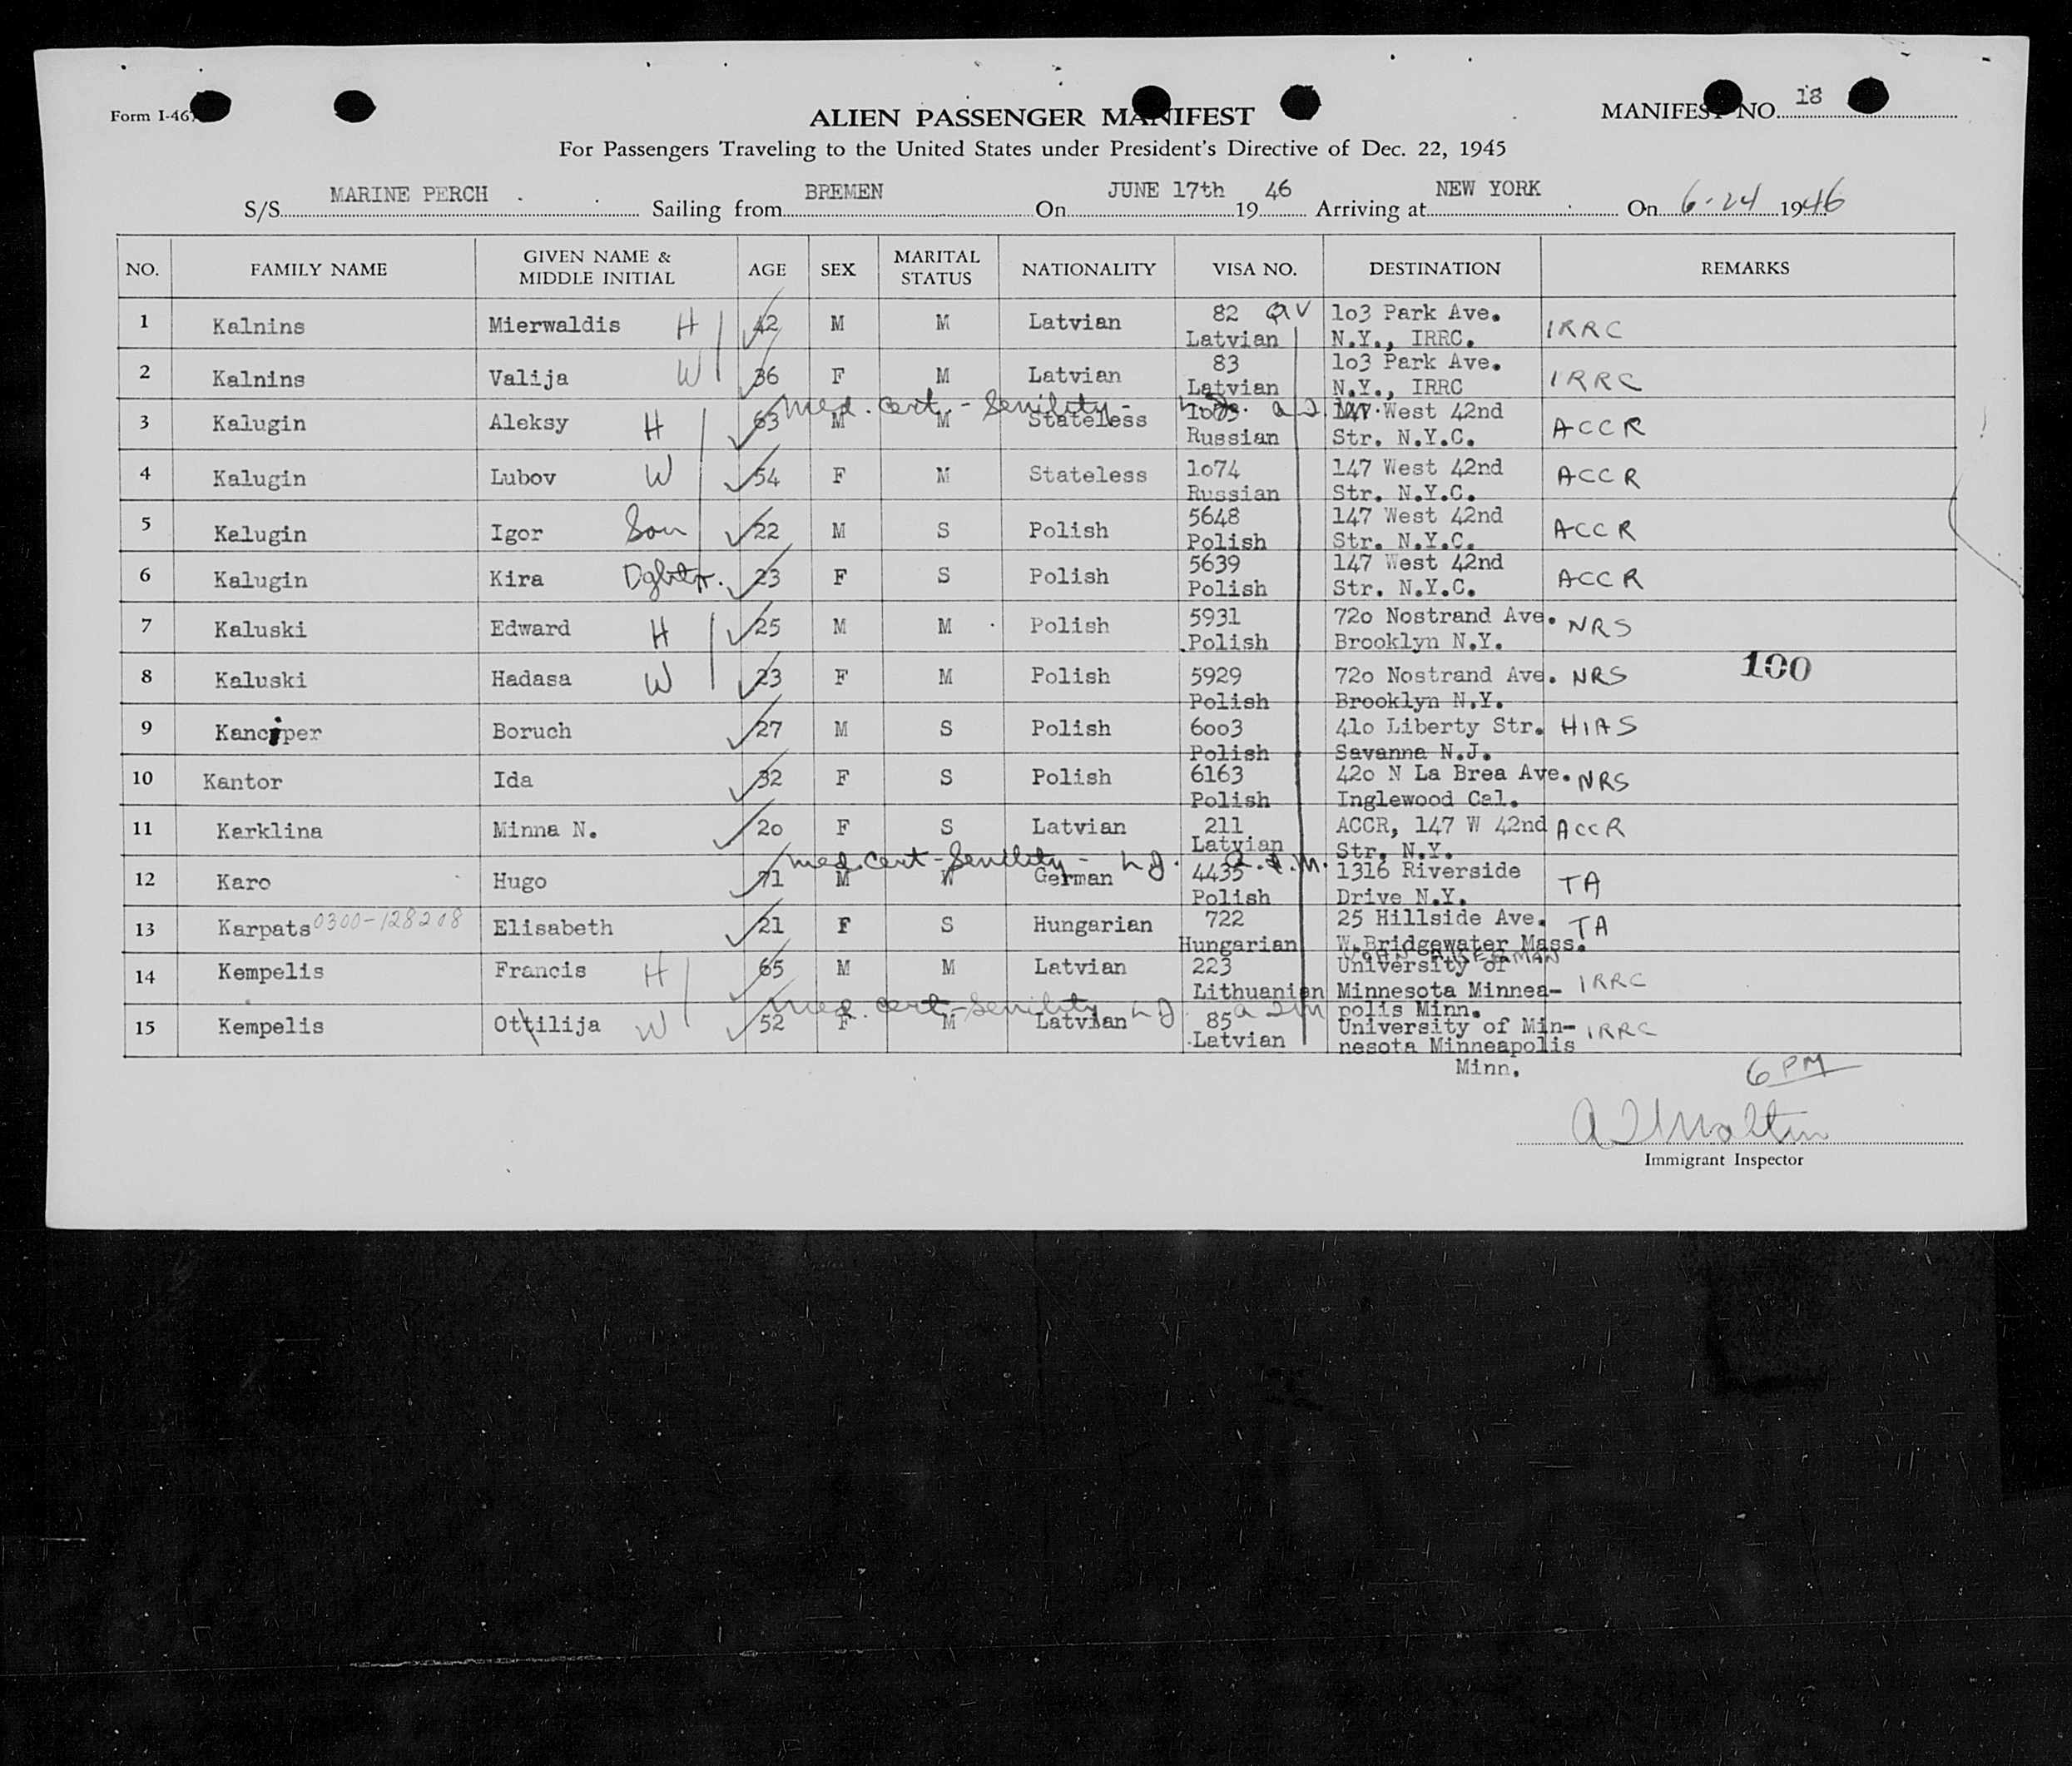 Form I-467
ALIEN PASSENGER MANIFEST
MANIFEST NO. 18
For Passengers Traveling to the United States under President's Directive of Dec. 22, 1945
S/S MARINE PERCH Sailing from BREMEN On JUNE 17th 19 46 Arriving at NEW YORK On 6-24 1946
NO. FAMILY NAME GIVEN NAME & MIDDLE INITIAL AGE SEX MARITAL STATUS NATIONALITY VISA NO. DESTINATION REMARKS
1 Kalnins Mierwaldis H 42 M M Latvian 82 QIV 1o3 Park Ave. IRRC
Latvian N.Y., IRRC.
2 Kalnins Valija W 36 F M Latvian 83 1o3 Park Ave. IRRC
Latvian N.Y., IRRC
med. cert. - Senility -
3 Kalugin Aleksy H 63 M M Stateless 1o73 147 West 42nd ACCR
Russian Str. N.Y.C.
4 Kalugin Lubov W 54 F M Stateless 1o74 147 West 42nd ACCR
Russian Str. N.Y.C.
5 Kalugin Igor Son 22 M S Polish 5648 147 West 42nd ACCR
Polish Str. N.Y.C.
6 Kalugin Kira Dghtr. 23 F S Polish 5639 147 West 42nd ACCR
Polish Str. N.Y.C.
7 Kaluski Edward H 25 M M Polish 5931 72o Nostrand Ave. NRS
Polish Brooklyn N.Y.
8 Kaluski Hadasa W 23 F M Polish 5929 72o Nostrand Ave. NRS 100
Polish Brooklyn N.Y.
9 Kanciper Boruch 27 M S Polish 6oo3 41o Liberty Str. HIAS
Polish Savanna N.J.
10 Kantor Ida 32 F S Polish 6163 42o N La Brea Ave. NRS
Polish Inglewood Cal.
11 Karklina Minna N. 2o F S Latvian 211 ACCR, 147 W 42nd ACCR
Latvian Str. N.Y.
med. cert - Senility -
12 Karo Hugo 71 M W German 4435 1316 Riverside TA
Polish Drive N.Y.
13 Karpats 0300-128208 Elisabeth 21 F S Hungarian 722 25 Hillside Ave. TA
Hungarian W.Bridgewater Mass.
14 Kempelis Francis H 65 M M Latvian 223 University of IRRC
Lithuanian Minnesota Minnea-
polis Minn.
med. cert - Senility
15 Kempelis Ottilija W 52 F M Latvian 85 University of Min- IRRC
Latvian nesota Minneapolis
Minn.
6 PM
Immigrant Inspector